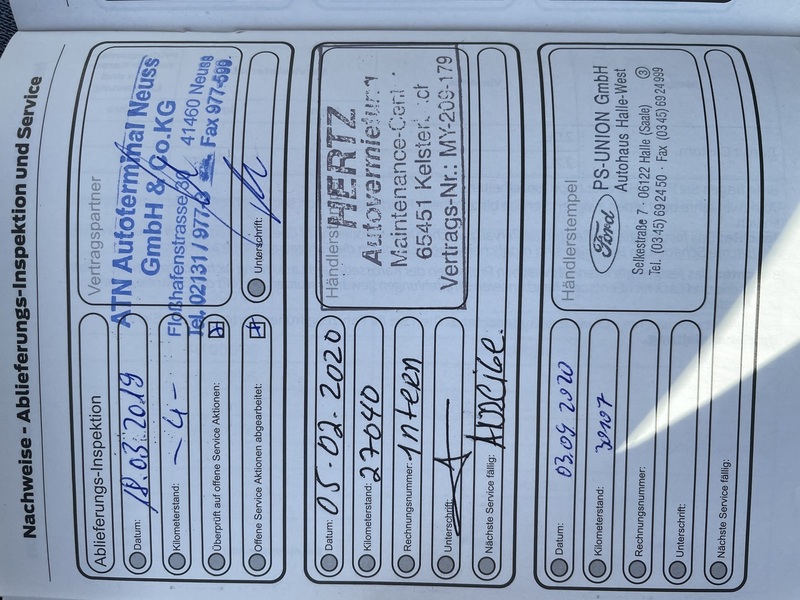 Nachweise - Ablieferungs-Inspektion und Service
Ablieferungs-Inspektion
Datum: 18.03.2019
Kilometerstand: - 4 -
Überprüft auf offene Service Aktionen:
Offene Service Aktionen abgearbeitet:
Vertragspartner
ATN Autoterminal Neuss
GmbH & Co.KG
Floßhafenstraße 30 41460 Neuss
Tel. 02131 / 977-0 Fax 977-599
Unterschrift:
Datum: 05.02.2020
Kilometerstand: 27040
Rechnungsnummer: Intern
Unterschrift:
Nächste Service fällig: Anzeige.
HERTZ
Autovermietung
Maintenance-Cent
65451 Kelster
Vertrags-Nr.: MY-209-179
Datum: 03.09 2020
Kilometerstand:
Rechnungsnummer:
Unterschrift:
Nächste Service fällig:
Händlerstempel
Ford PS-UNION GmbH
Autohaus Halle-West
Selkestraße 7 · 06122 Halle (Saale) 3
Tel. (0345) 692450 · Fax (0345) 6924999